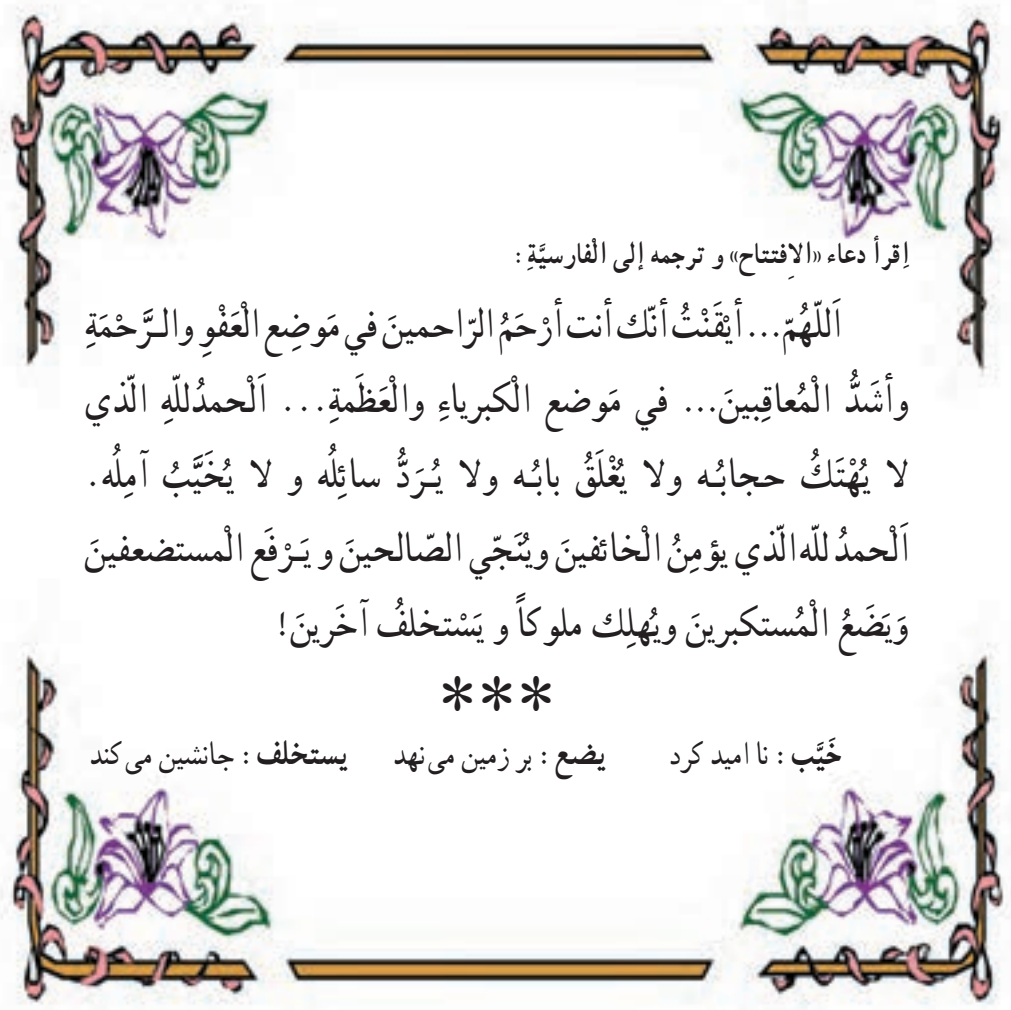 اِقرأ دعاء «الاِفتتاح» و ترجمه إلى الْفارسيَّةِ :
اَللّهُمّ... أيْقَنْتُ أنّك أنت أرْحَمُ الرّاحمينَ في مَوضِع الْعَفْوِ والرَّحْمَةِ
وأشَدُّ الْمُعاقِبينَ... في مَوضع الْكبرياءِ والْعَظَمةِ... اَلْحمدُللّهِ الّذي
لا يُهْتَكُ حجابُه ولا يُغْلَقُ بابُه ولا يُرَدُّ سائِلُه و لا يُخَيَّبُ آمِلُه.
اَلْحمدُ للّه الّذي يؤمِنُ الْخائفينَ ويُنَجّي الصّالحينَ و يَرْفَع الْمستضعفينَ
وَيَضَعُ الْمُستكبرينَ ويُهلِك ملوكاً و يَسْتخلفُ آخَرينَ!
***
خَيَّب : نا اميد كرد يضع : بر زمين مى‌نهد يستخلف : جانشين مى‌كند